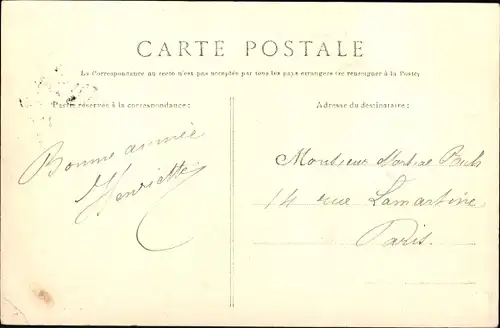 CARTE POSTALE
La Correspondance au recto n'est pas acceptée par tous les pays étrangers (se renseigner à la Poste)
Partie réservée à la correspondance :
Adresse du destinataire :
Bonne année
Henriette
Monsieur Martial
14 rue Lamartine
Paris.